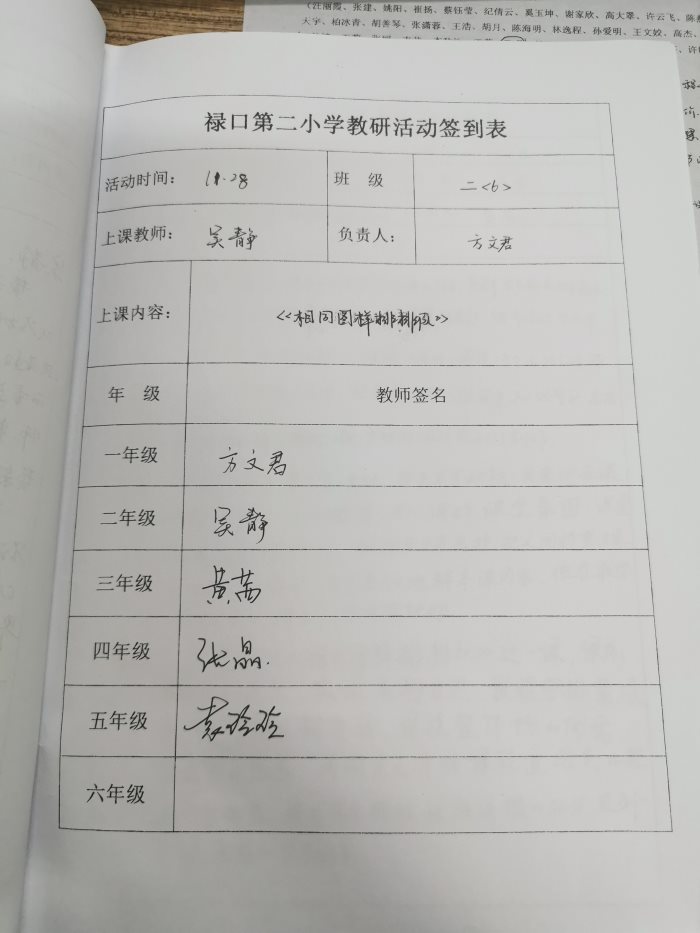 (汪丽霞、张建、姚阳、崔扬、蔡钰莹、纪倩云、奚玉坤、谢家欣、高大翠、许云飞、陈
大宇、柏冰青、胡善琴、张潇蓉、王浩、胡月、陈海明、林逸程、孙爱明、王文姣、高杰、
禄口第二小学教研活动签到表
活动时间: 11.28 班 级 二<6>
上课教师: 吴静 负责人: 方文君
上课内容: <<相同图样排排队>>
年 级 教师签名
一年级 方文君
二年级 吴静
三年级 黄茜
四年级 张晶.
五年级 袁玲玲
六年级